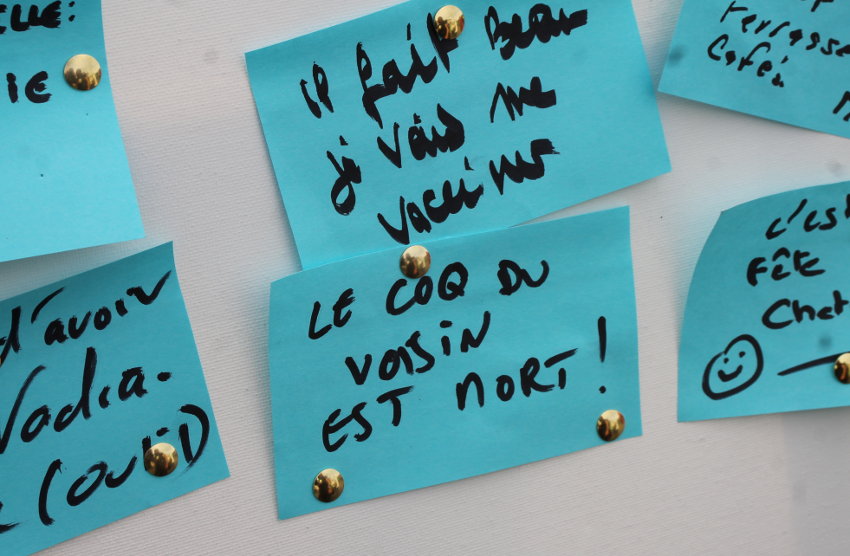 LLE:
IE
Il fait beau
je vais me
vacciner
Terrasse
Café
d'avoir
Nadia.
(OUID)
LE COQ DU
VOISIN
EST MORT!
c'est
FÊTE
Chet